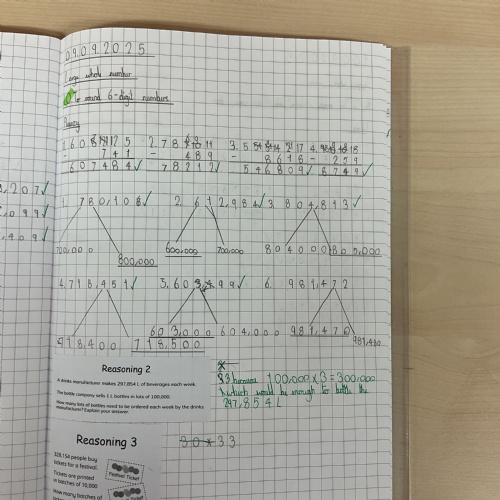 09.09.2025
Large whole number
To round 6-digit numbers
Fluency
1. 2. 78 3. 4.
- 741 - 489 - 8618 - 259
607484✓ 78212✓ 546809✓ 8749✓
207✓
099✓
409✓
1. 780,108✓ 2. 612,984✓ 3. 804,813✓
700,000 800,000 600,000 700,000 804000 805,000
4. 718,451✓ 5. 603,499✓ 6. 981,472
718,400 718,500 603,000 604,000 981,470 981,480
Reasoning 2
A drinks manufacturer makes 297,854 L of beverages each week.
The bottle company sells 1 L bottles in lots of 100,000.
How many lots of bottles need to be ordered each week by the drinks
manufacturer? Explain your answer.
3 because 100,000 x 3 = 300,000
which would be enough to bottle the
297,854 L
Reasoning 3
328,154 people buy
tickets for a festival.
Tickets are printed
in batches of 10,000
How many batches of
Festival Ticket
30 x 33